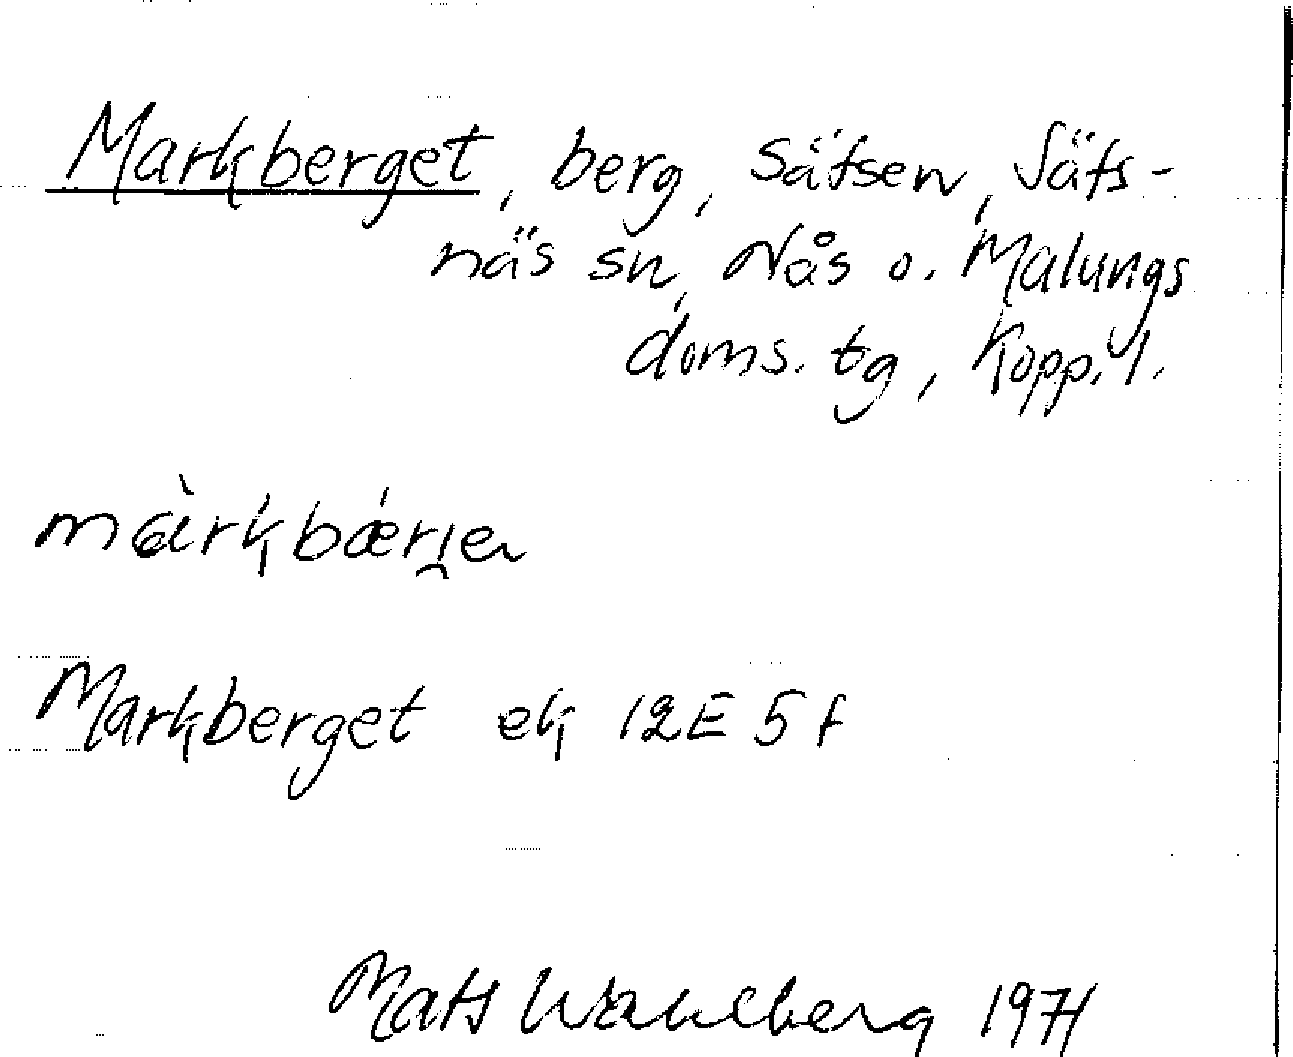 Markberget, berg, Säfsen, Säfs-
näs sn, Nås o. Malungs
doms. tg, Kopp. l.
màrkbǽrje
Markberget ek 12E 5f
Mats Wahlberg 1971